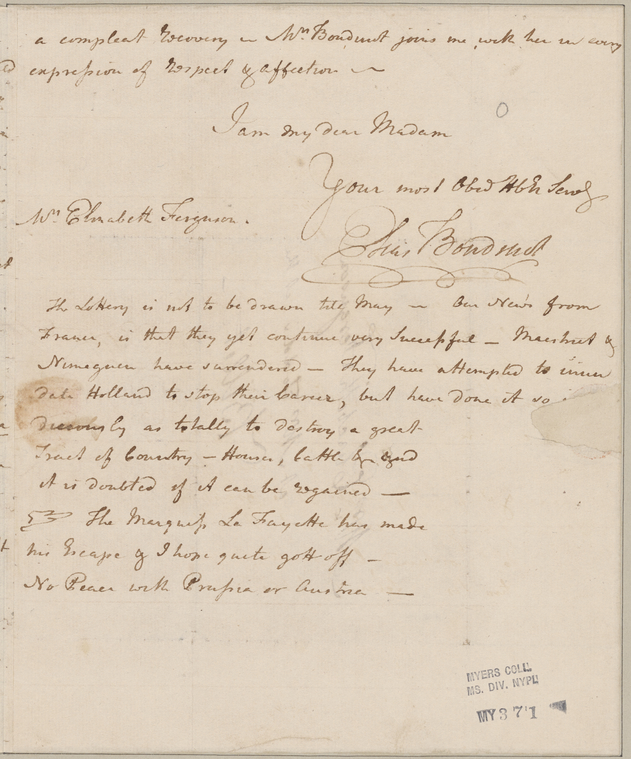 a compleat Recovery – Mrs. Boudinot joins me with her in every
expression of Respect & affection –
I am my dear Madam
Your most Obed Hble Servt
Elias Boudinot
Mrs Elizabeth Ferguson.
The Lottery is not to be drawn till May – Our News from
France, is that they yet continue very Successful – Maestrict &
Nimeguen have surrendered – They have attempted to inun
date Holland to stop their Career, but have done it so
as totally to destroy a great
Tract of Country – Houses, Cattle & and
it is doubted if it can be regained –
The Marquiss La Fayette has made
his Escape & I hope quite gott off –
No Peace with Prussia or Austria –
MYERS COLL.
MS. DIV. NYPL
MY 3 7 1